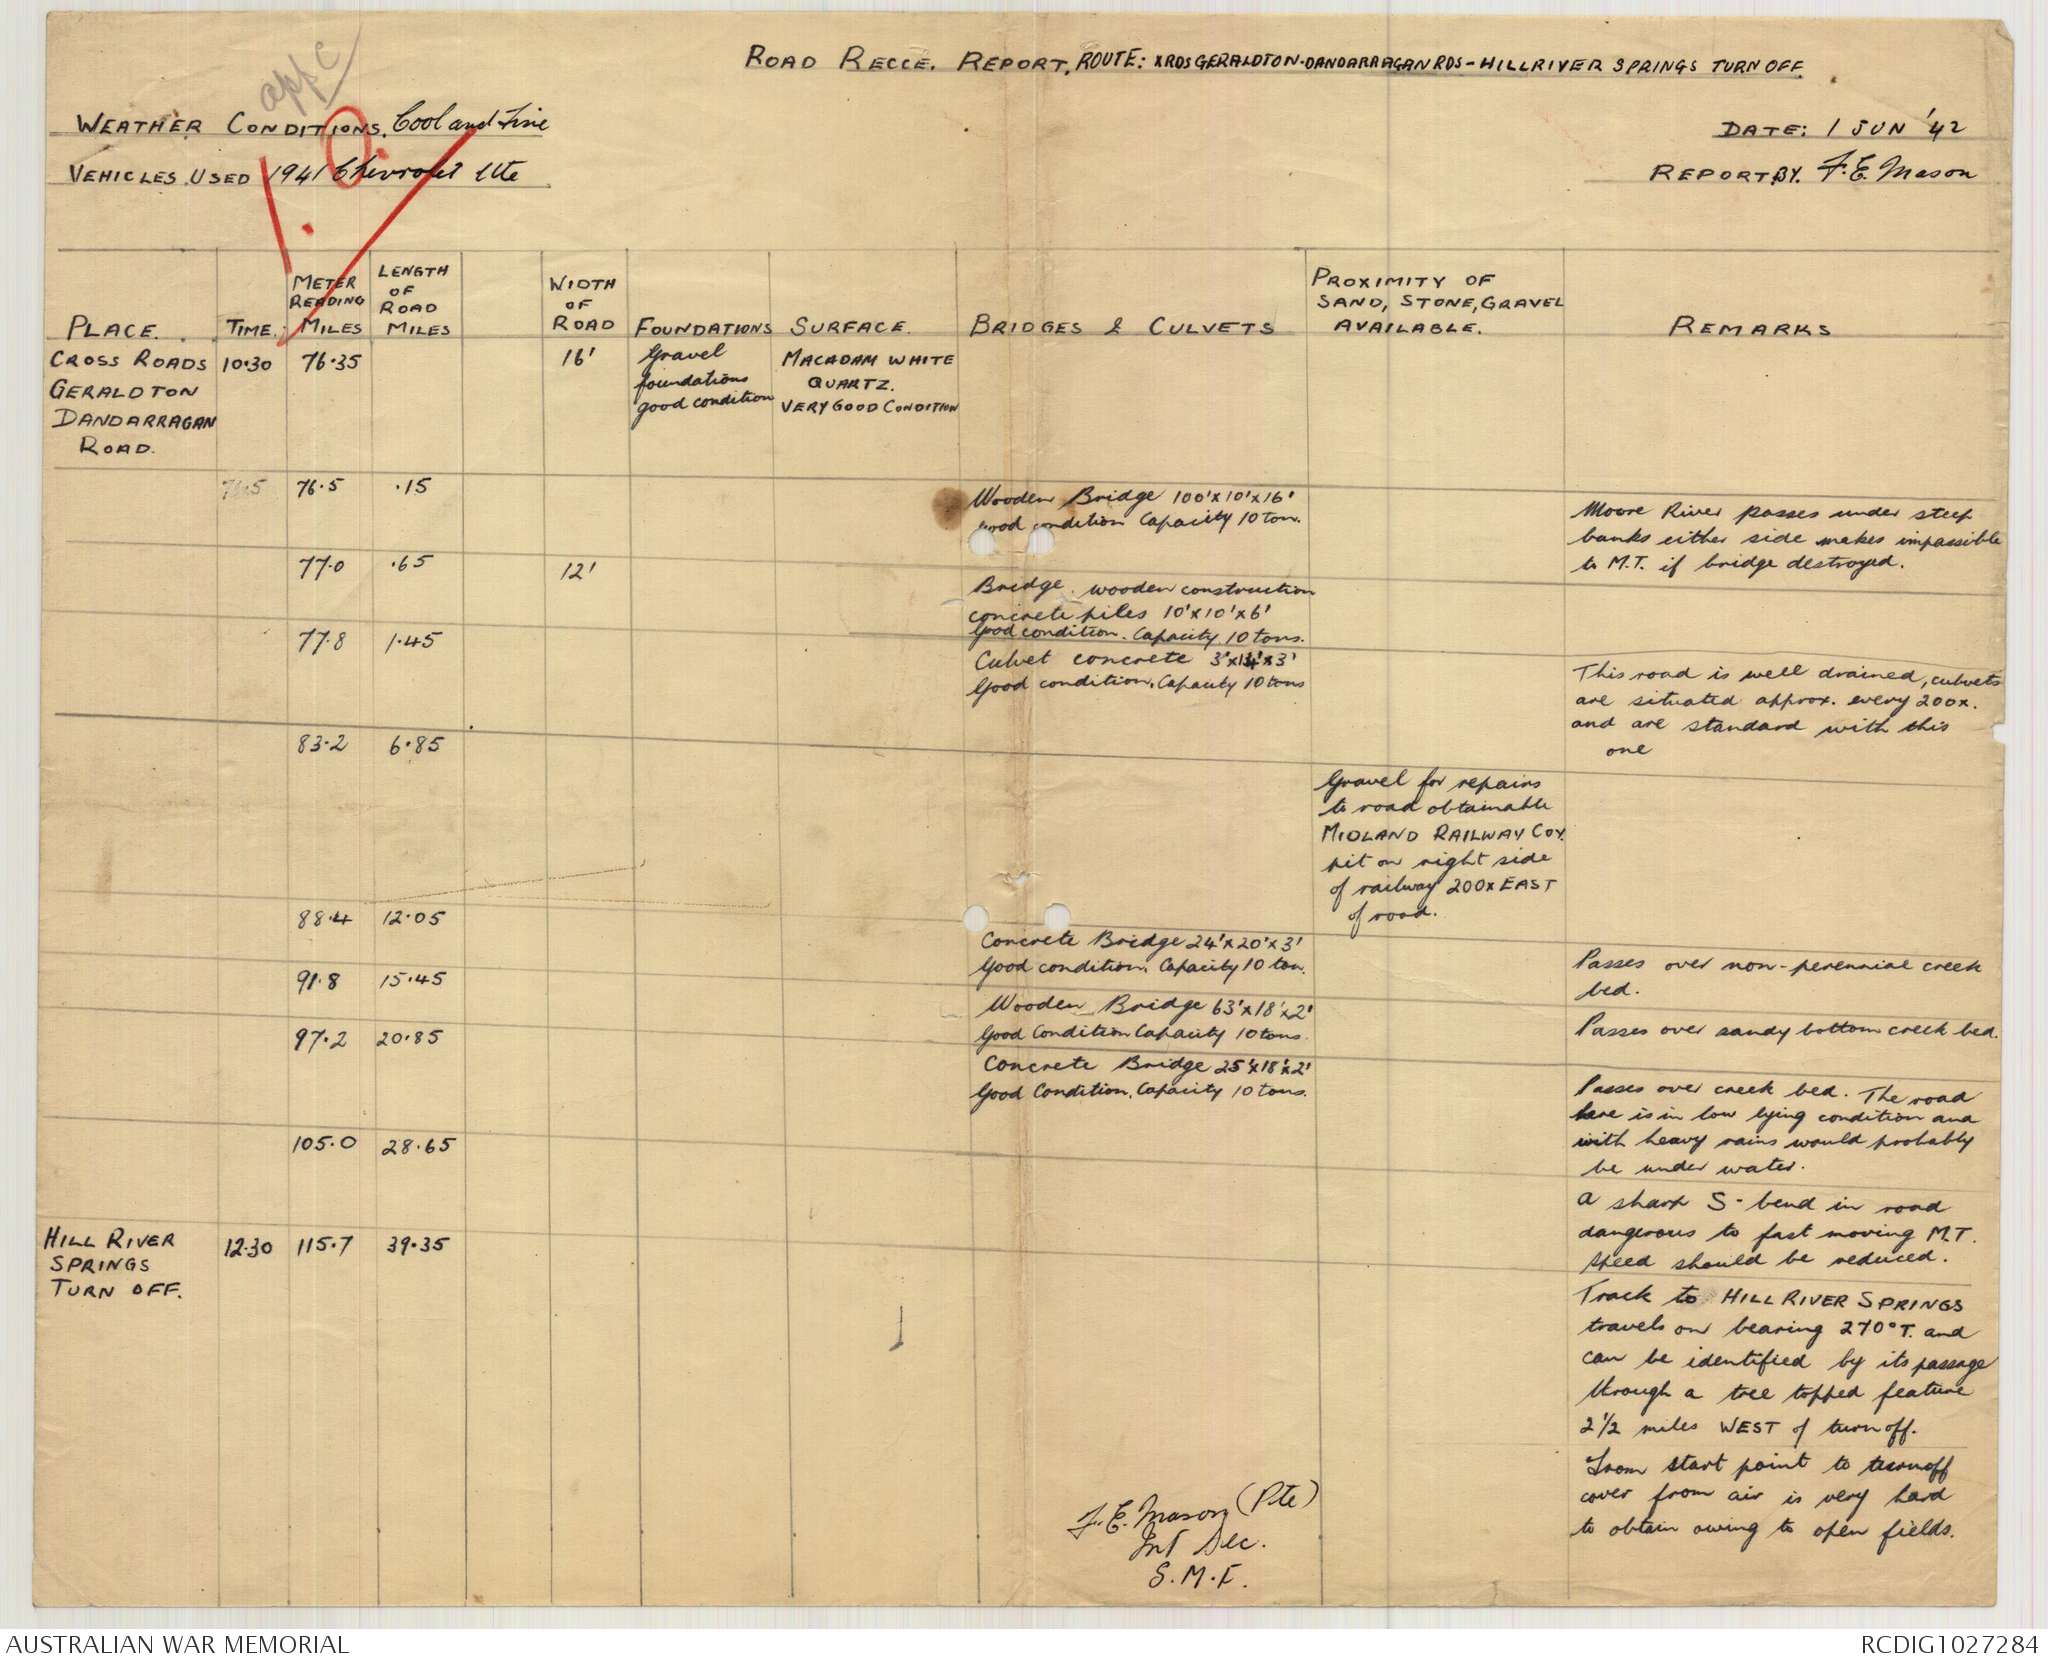 app C
ROAD RECCE. REPORT. ROUTE: XRDS GERALDTON-DANDARRAGAN RDS - HILL RIVER SPRINGS TURN OFF
WEATHER CONDITIONS. Cool and Fine
DATE: 1 JUN '42
VEHICLES USED 1941 Chevrolet Ute
REPORT BY. F.E. Mason
PLACE.
TIME.
METER READING MILES
LENGTH OF ROAD MILES
WIDTH OF ROAD
FOUNDATIONS
SURFACE.
BRIDGES & CULVETS
PROXIMITY OF SAND, STONE, GRAVEL AVAILABLE.
REMARKS
CROSS ROADS 10.30 76.35 16' Gravel MACADAM WHITE
GERALDTON foundations QUARTZ.
DANDARRAGAN good condition VERY GOOD CONDITION
ROAD.
76.5 76.5 .15
Wooden Bridge 100'x10'x16'
good condition Capacity 10 ton.
Moore River passes under steep
banks either side makes impassible
to M.T. if bridge destroyed.
77.0 .65 12'
Bridge. wooden construction
concrete piles 10'x10'x6'
Good condition. Capacity 10 tons.
77.8 1.45
Culvet concrete 3'x14'x3'
Good condition. Capacity 10 tons
This road is well drained, culvets
are situated approx. every 200x.
and are standard with this
one
83.2 6.85
Gravel for repairs
to road obtainable
MIDLAND RAILWAY COY.
pit on right side
of railway 200x EAST
of road.
88.4 12.05
Concrete Bridge 24'x20'x3'
Good condition. Capacity 10 ton.
Passes over non-perennial creek
bed.
91.8 15.45
Wooden Bridge 63'x18'x2'
Good Condition Capacity 10 tons.
Passes over sandy bottom creek bed.
97.2 20.85
Concrete Bridge 25'x18'x2'
Good Condition. Capacity 10 tons.
Passes over creek bed. The road
here is in low lying condition and
with heavy rains would probably
be under water.
105.0 28.65
A sharp S-bend in road
dangerous to fast moving M.T.
speed should be reduced.
HILL RIVER 12.30 115.7 39.35
SPRINGS
TURN OFF.
Track to HILL RIVER SPRINGS
travels on bearing 270° T. and
can be identified by its passage
through a tree topped feature
2 1/2 miles WEST of turn off.
From start point to turnoff
cover from air is very hard
to obtain owing to open fields.
F.E. Mason (Pte)
Int Sec.
S.M.F.
AUSTRALIAN WAR MEMORIAL
RCDIG1027284